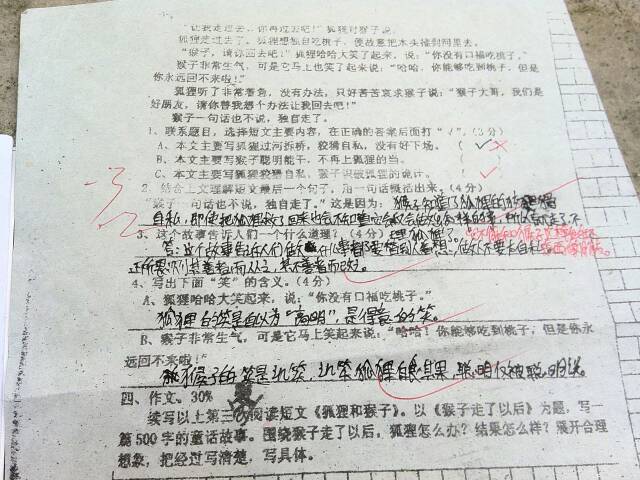 "让我走过去，你再过去吧！"狐狸对猴子说。
狐狸走过去了，狐狸想独自吃桃子，便故意把木头推到河里去。
"猴子，请你回去吧！"狐狸哈哈大笑了起来，说："你没有口福吃桃子。"
猴子非常生气，可是它马上也笑了起来说："哈哈，你能够吃到桃子，但是
你永远回不来啦！"
狐狸听了非常着急，没有办法，只好苦苦哀求猴子说："猴子大哥，我们是
好朋友，请你替我想个办法让我回去吧！"
猴子一句话也不说，独自走了。
1、联系题目，选择短文主要内容，在正确的答案后面打"√"。(3分)
A、本文主要写狐狸过河拆桥，狡猾自私，没有好下场。 (√)
B、本文主要写猴子聪明能干，不再上狐狸的当。 ( )
C、本文主要写狐狸狡猾自私，猴子识破狐狸的诡计。 (✓)
2、结合上文理解短文最后一个句子，用一句话概括出来。(4分)
"猴子一句话也不说，独自走了。"这是因为：猴子知道了狐狸的
自私，即使把狐狸救了回来也会
理狐狸了。
3、这个故事告诉人们一个什么道理？(4分)
答：这个故事告诉人们做什么事都要替别人着想，做人不要太自私
4、写出下面"笑"的含义。(4分)
A、狐狸哈哈大笑起来，说："你没有口福吃桃子。"
狐狸的笑是自以为"高明"，是得意的笑。
B、猴子非常生气，可是它马上笑起来说："哈哈！你能够吃到桃子，但是你永
远回不来啦！"
猴子的笑是讥笑，讥笑狐狸自食其果，聪明反被聪明误
四、作文。30%
续写以上第三个阅读短文《狐狸和猴子》。以《猴子走了以后》为题，写一
篇500字的童话故事。围绕猴子走了以后，狐狸怎么办？结果怎么样？展开合理
想象，把经过写清楚，写具体。